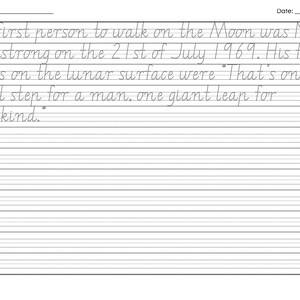 Date:
first person to walk on the Moon was
strong on the 21st of July 1969. His
s on the lunar surface were "That's on
l step for a man, one giant leap for
kind."